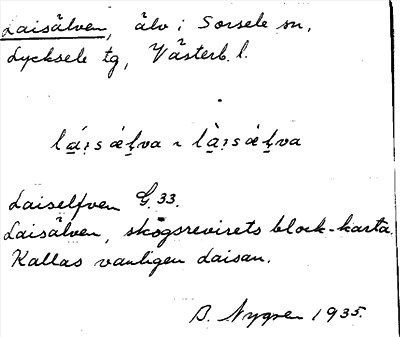 Laisälven, älv i Sorsele sn,
Lycksele tg, Västerb. l.
Laiselfven G. 33.
Laisälven, skogsrevirets block-karta.
Kallas vanligen Laisan.
B. Nygren 1935.